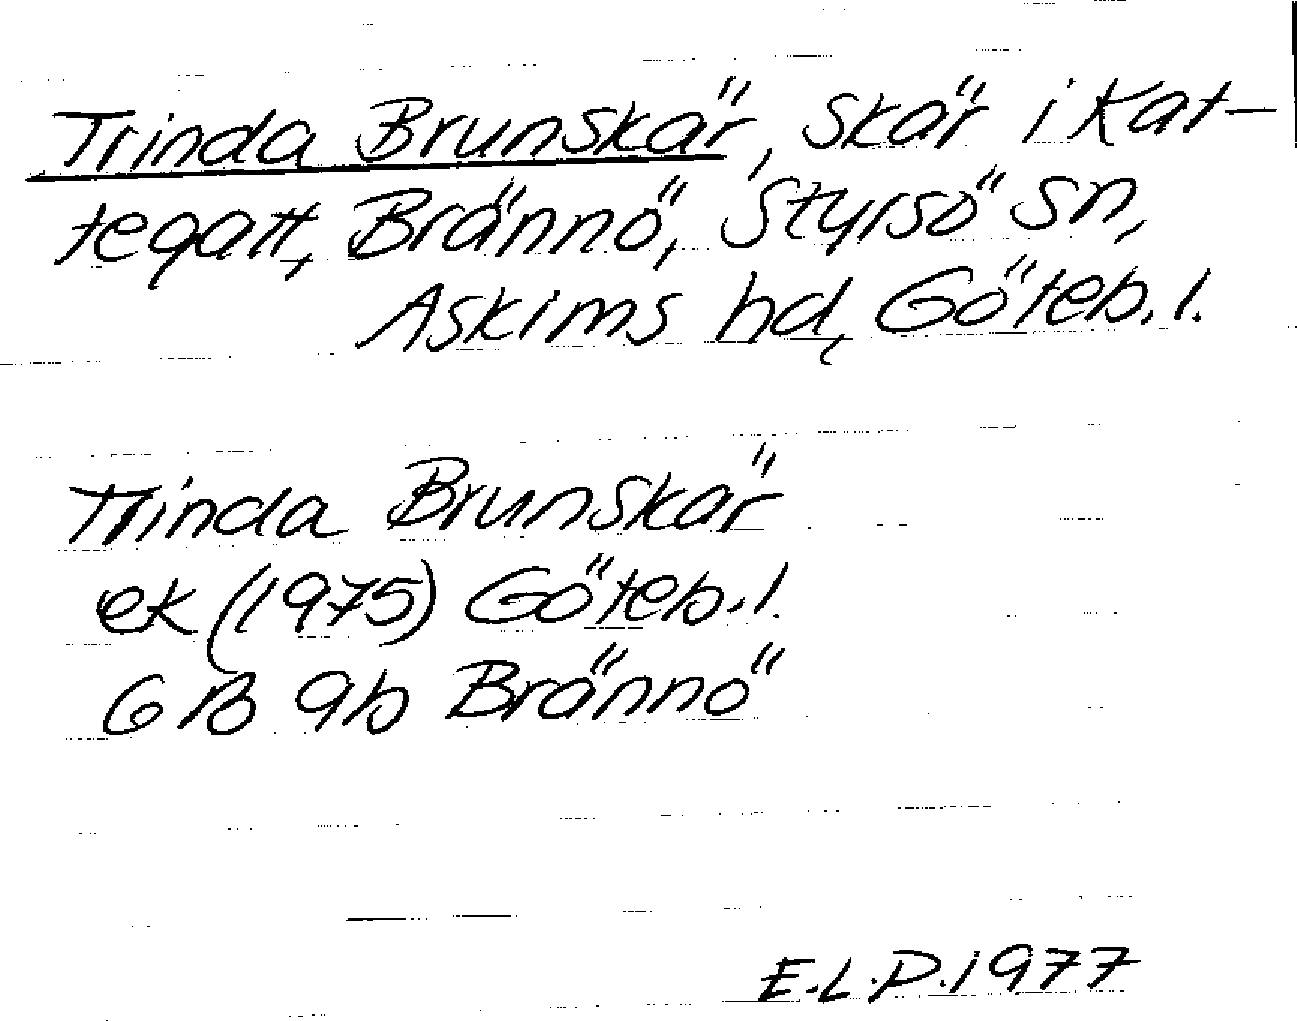 Trinda Brunskär, skär i Kat-
tegatt, Brännö, Styrsö sn,
Askims hd, Göteb. l.
Trinda Brunskär
ek (1975) Göteb. l.
6B 9b Brännö
E.L.P. 1977